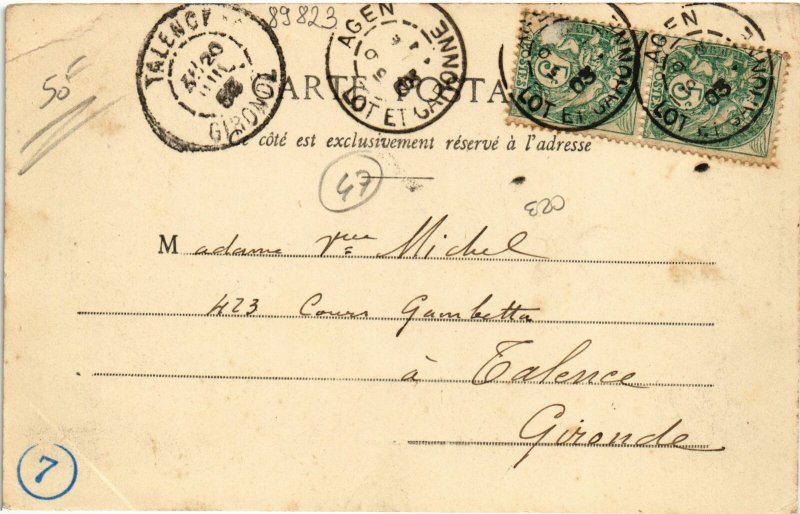 89823
TALENCE
20
GIRONDE
AGEN
03
LOT ET GARONNE
AGEN
03
LOT ET GARONNE
5
AGEN
03
LOT ET GARONNE
5
50
CARTE POSTALE
Ce côté est exclusivement réservé à l'adresse
47
023
Madame Vve Michel
423 Cours Gambetta
à Talence
Gironde
7